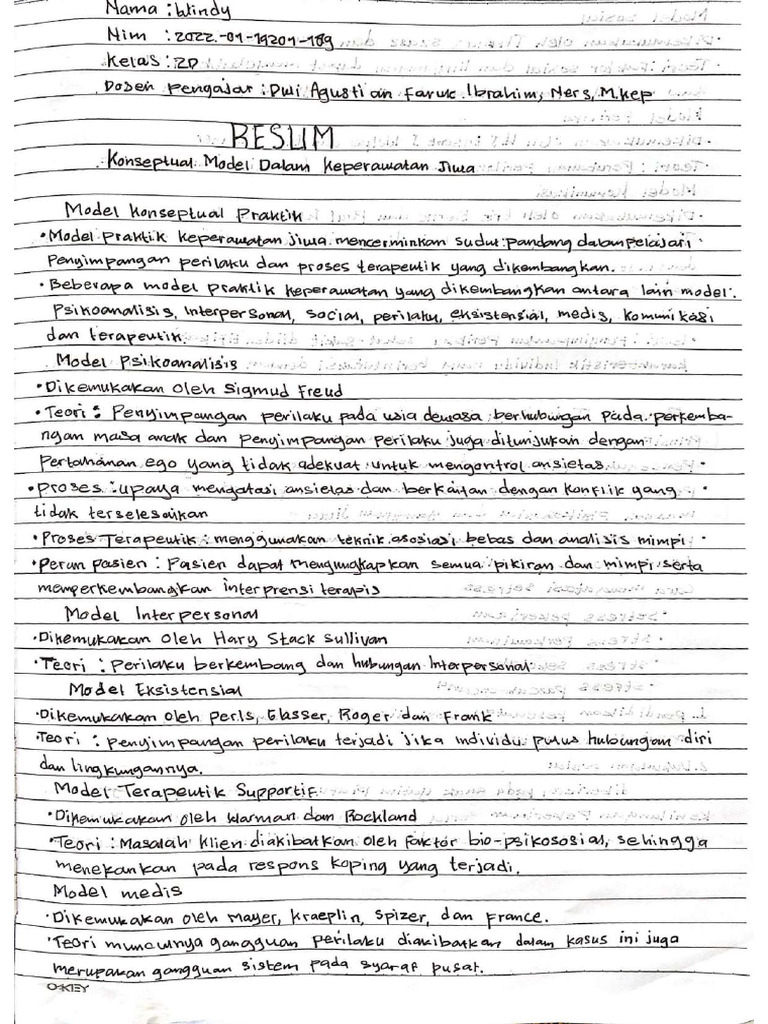 Nama : Windy
Nim : 2022-01-14201-189
Kelas : 2D
Dosen Pengajar : Dwi Agustian Faruk Ibrahim, Ners, M.Kep
RESUM
Konseptual Model Dalam Keperawatan Jiwa
Model Konseptual Praktik
• Model praktik keperawatan jiwa mencerminkan sudut pandang dalam pelajari
Penyimpangan perilaku dan proses terapeutik yang dikembangkan.
• Beberapa model praktik keperawatan yang dikembangkan antara lain model:
Psikoanalisis, Interpersonal, social, perilaku, eksistensial, medis, komunikasi
dan terapeutik
Model Psikoanalisis
• Dikemukakan Oleh Sigmud Freud
• Teori : Penyimpangan perilaku pada usia dewasa berhubungan pada perkemba-
ngan masa anak dan penyimpangan perilaku juga ditunjukan dengan
pertahanan ego yang tidak adekuat untuk mengontrol ansietas
• Proses : upaya mengatasi ansietas dan berkaitan dengan konflik yang
tidak terselesaikan
• Proses Terapeutik : menggunakan teknik asosiasi bebas dan analisis mimpi
• Peran pasien : Pasien dapat mengungkapkan semua pikiran dan mimpi serta
memperkembangkan interprensi terapis
Model Interpersonal
• Dikemukakan Oleh Hary Stack Sullivan
• Teori : Perilaku berkembang dan hubungan Interpersonal
Model Eksistensial
• Dikemukakan oleh perls, Glasser, Roger dan Frank
• Teori : penyimpangan perilaku terjadi jika individu putus hubungan diri
dan lingkungannya.
Model Terapeutik Supportif
• Dikemukakan oleh Warman dan Rockland
• Teori : Masalah klien diakibatkan oleh faktor bio-psikososial, sehingga
menekankan pada respons koping yang terjadi.
Model medis
• Dikemukakan oleh Mayer, Kraeplin, Spizer, dan France.
• Teori munculnya gangguan perilaku diakibatkan dalam kasus ini juga
merupakan gangguan sistem pada syaraf pusat.
O-KEY